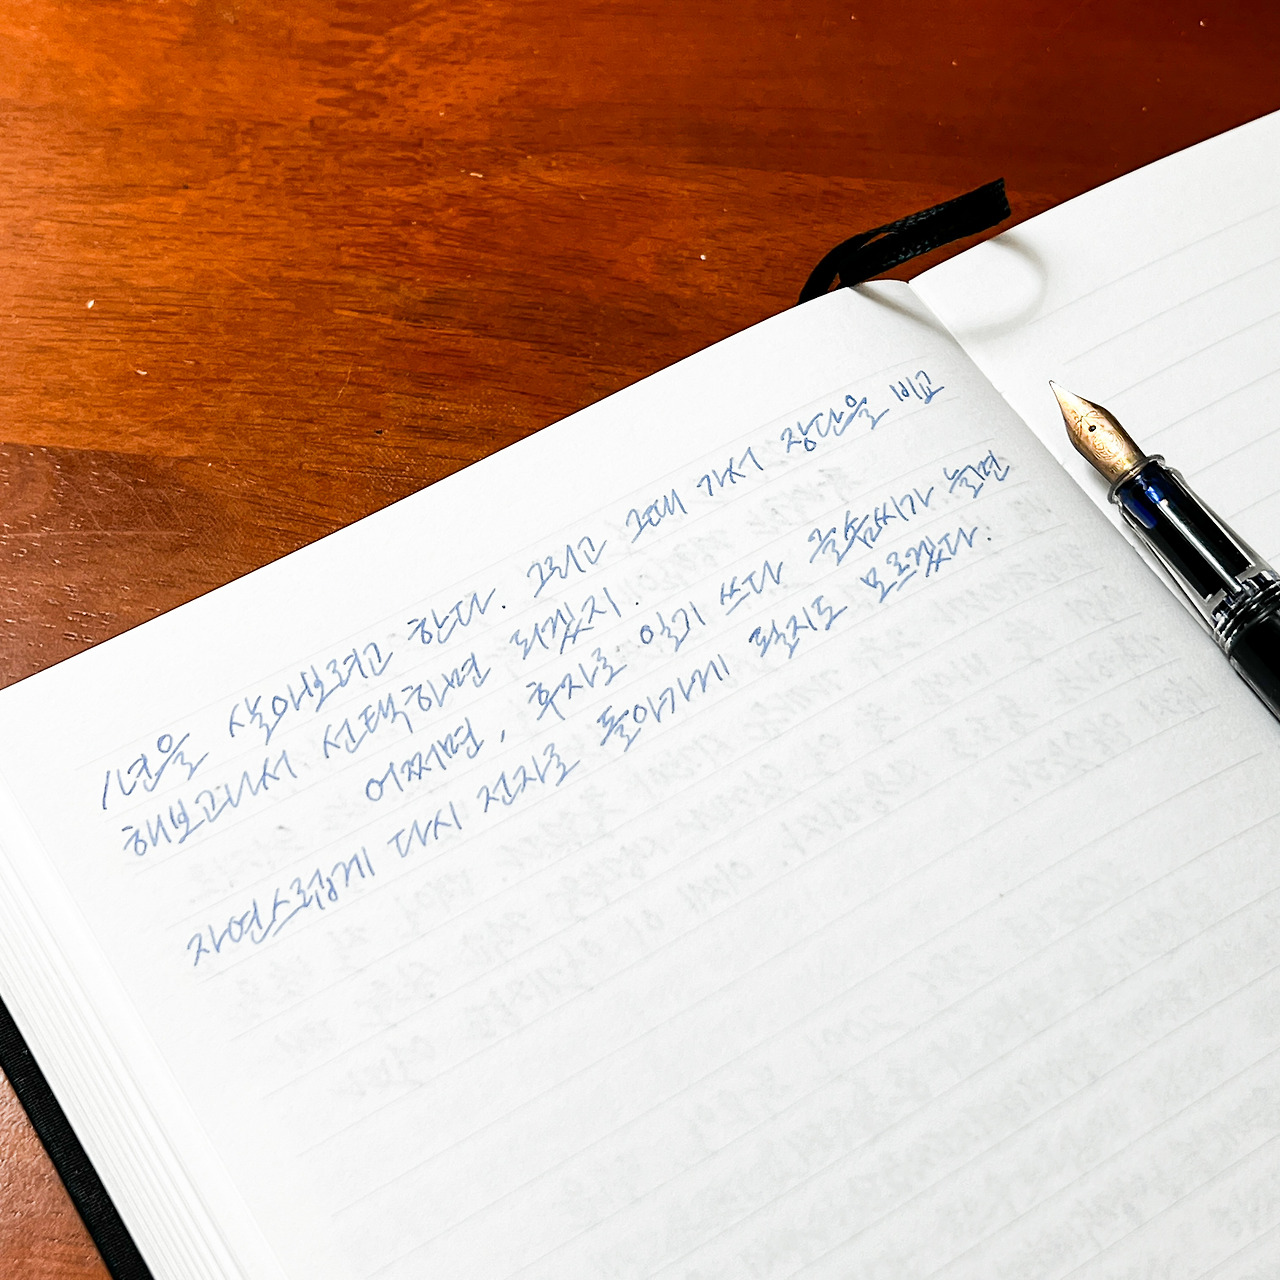 1년을 살아보려고 한다. 그리고 그때 가서 장단을 비교
해보고나서 선택하면 되겠지.
어쩌면, 후자로 일기 쓰다 글솜씨가 늘면
자연스럽게 다시 전자로 돌아가게 될지도 모르겠다.